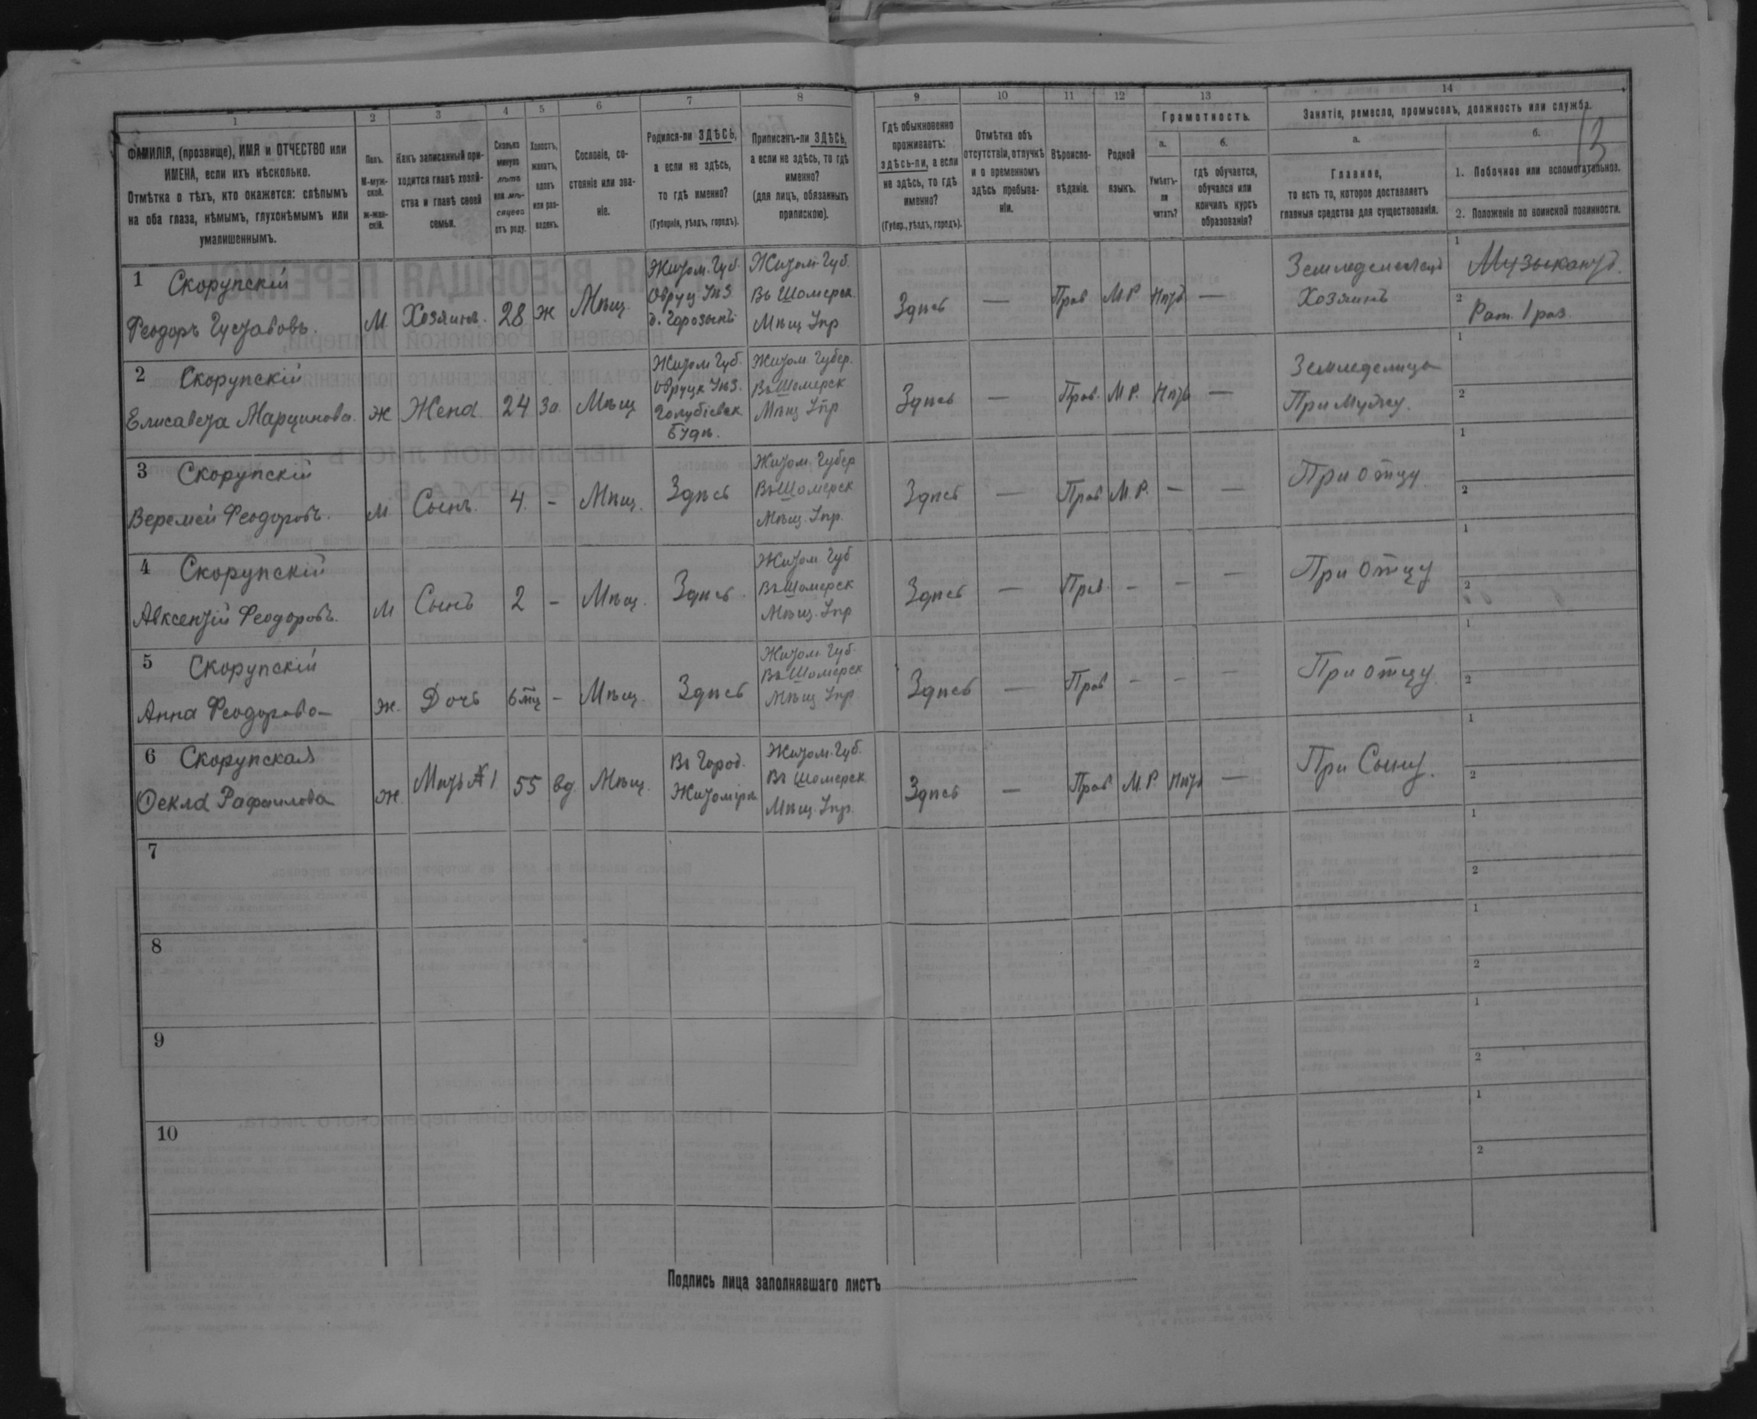 13
1
2
3
4
5
6
7
8
9
10
11
12
13
14
ФАМИЛІЯ, (прозвище), ИМЯ и ОТЧЕСТВО или
ИМЕНА, если ихъ нѣсколько.
Отмѣтка о тѣхъ, кто окажется: слѣпымъ
на оба глаза, нѣмымъ, глухонѣмымъ или
умалишеннымъ.
Полъ.
М-муж-
ской.
ж-жен-
скій.
Какъ записанный при-
ходится главѣ хозяй-
ства и главѣ своей
семьи.
Сколько
минуло
лѣтъ
или мѣ-
сяцевъ
отъ роду.
Холостъ,
женатъ,
вдовъ
или раз-
веденъ.
Сословіе, со-
стояніе или зва-
ніе.
Родился-ли ЗДѢСЬ,
а если не здѣсь,
то гдѣ именно?
(Губернія, уѣздъ, городъ).
Приписанъ-ли ЗДѢСЬ,
а если не здѣсь, то гдѣ
именно?
(для лицъ, обязанныхъ
припискою).
Гдѣ обыкновенно
проживаетъ:
здѣсь-ли, а если
не здѣсь, то гдѣ
именно?
(Губер., уѣздъ, городъ).
Отмѣтка объ
отсутствіи, отлучкѣ
и о временномъ
здѣсь пребыва-
ніи.
Вѣроиспо-
вѣданіе.
Родной
языкъ.
Грамотность.
а.
Умѣетъ-
ли
читать?
б.
гдѣ обучается,
обучался или
кончилъ курсъ
образованія?
Занятіе, ремесло, промыселъ, должность или служба.
а.
Главное,
то есть то, которое доставляетъ
главныя средства для существованія.
б.
1. Побочное или вспомогательное.
2. Положеніе по воинской повинности.
1 Скорупскій
Феодоръ Густавовъ.
М
Хозяинъ.
28
ж
Мѣщ.
Житом. Губ
Овруч Уѣз.
Житом. Губ.
Въ Шомерск
Мѣщ Упр
Здѣсь
—
Прав
М.Р.
Нѣтъ
—
Хозяинъ
1 Музыкантъ.
2 Рат. 1 раз.
2 Скорупскій
Елисавета Мартинова.
ж
Жена
24
За.
Мѣщ
Житом Губ.
Овруцк Уѣз.
Житом. Губер.
Въ Шомерск
Мѣщ Упр
Здѣсь
—
Прав.
М.Р.
Нѣтъ
—
Земледелица
При Мужу.
1
2
3 Скорупскій
Веремей Феодоровъ.
М
Сынъ.
4
-
Мѣщ.
Здѣсь
Житом Губер
Въ Шомерск
Мѣщ. Упр.
Здѣсь
—
Прав
М.Р.
—
—
При отцу
1
2
4 Скорупскій
Авксентій Феодоровъ.
М
Сынъ
2
-
Мѣщ.
Здѣсь
Житом Губ
Въ Шомерск
Мѣщ. Упр
Здѣсь
—
Прав.
-
-
—
При отцу
1
2
5 Скорупскій
Анна Феодорова
ж.
Дочь
6 мц
-
Мѣщ.
Здѣсь
Житом. Губ.
Въ Шомерск
Мѣщ Упр
Здѣсь
—
Прав
-
-
—
При отцу.
1
2
6 Скорупская
Фекла Рафаилова
ж.
Мать № 1
55
вд.
Мѣщ.
Въ Город.
Житомірѣ
Житом. Губ.
Въ Шомерск
Мѣщ. Упр.
Здѣсь
—
Прав
М.Р.
Нѣтъ
—
При Сыну.
1
2
7
1
2
8
1
2
9
1
2
10
1
2
Подпись лица заполнявшаго листъ